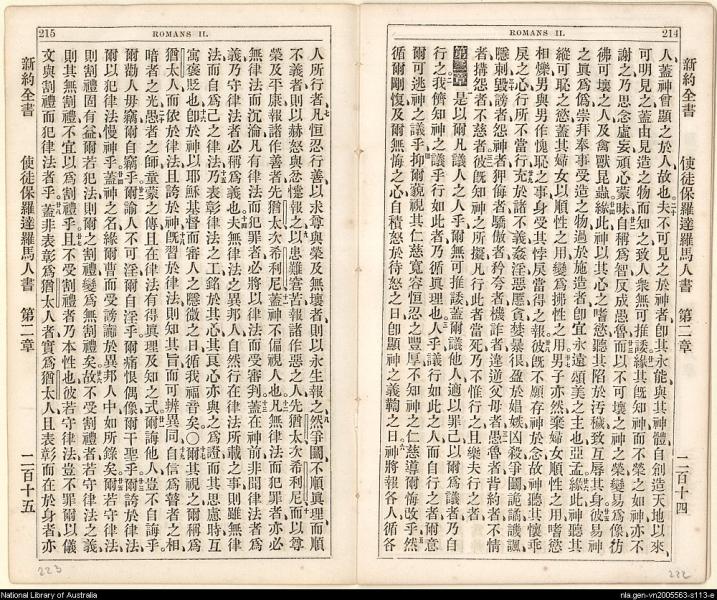 214
ROMANS II.
新約全書 使徒保羅達羅馬人書 第二章 二百十四
人蓋神曾顯之於人故也夫不可見之於神者卽其永能與其神體自創造天地以來
可明見之蓋由見造之物而知之致人衆無可推諉緣其旣知神而不榮之如神亦不
謝之乃思念虛妄頑心蒙昧自稱爲智反成愚魯而以不可壞之神之榮變易爲像彷
彿可壞之人及禽獸昆蟲緣此神以其心之嗜慾聽其陷於汚穢致互辱其身彼易神
之眞爲僞崇拜奉事受造之物過於施造者卽宜永遠頌美之主也亞孟緣此神聽其
縱可恥之慾蓋其婦女以順性之用變爲拂性之用男子亦然棄婦女順性之用而嗜慾
相爍男與男作愧恥之事身受其悖戾當得之報彼旣不願存神於念故神聽其懷乖
戾之心行所不當行充於諸不義姦淫惡慝貪婪暴很盈於娼嫉凶殺爭鬭詭譎譏諷
隱刺毀謗者怨神者狎侮者驕傲者矜夸者機詐者違逆父母者愚魯者背約者不情
者搆怨者不慈者彼旣知神之所擬凡行此者當死乃不惟行之且樂夫行之者
第二章 是以爾凡議人之人乎爾無可推諉蓋爾議他人適以罪己以爾爲議者乃自
行之我儕知神之議乎行如此者乃循眞理也人乎議行如此之人而自行之者爾意
爾可逃神之議乎抑爾藐視其仁慈寬容恒忍之豐厚不知神之仁慈導爾悔改乎然
循爾剛愎及爾無悔之心自積怒於待怒之日卽顯神之義鞫之日神將報各人循各
222
215
ROMANS II.
人所行者凡恒忍行善以求尊與榮及無壞者則以永生報之然爭鬭不順眞理而順
不義者則以赫怒與忿懥報之以患難窘苦報諸作惡之人先猶太次希利尼而以尊
榮及平康報諸作善者先猶太次希利尼蓋神不偏視人也凡無律法而犯罪者亦必
無律法而沉淪凡有律法而犯罪者必將以律法而受審判蓋在神前非聞律法者爲
義乃守律法者必稱爲義也夫無律法之異邦人自然行在律法所載之事則雖無律
法而自爲己之律法乃表彰律法之工銘於其心其良心亦與之爲證而其思慮時互
寓褒貶也卽於神以耶穌基督而審人之隱微之日循我福音矣〇爾其視之爾稱爲
猶太人而依於律法且誇於神旣習於律法則知其旨而可辨異同自信爲瞽者之相
暗者之光愚者之師童蒙之傅且在律法有得眞理及知之式爾誨他人豈不自誨乎
爾勸人毋竊爾自竊乎爾諭人不可淫爾自淫乎爾痛恨偶像爾干聖乎爾誇於律法
爾以犯律法慢神乎蓋神之名緣爾曹而受謗讟於異邦人中如所錄矣爾若守律法
則割禮固有益爾若犯法則爾之割禮變爲無割禮矣故不受割禮者若守律法之義
則其無割禮不宜以爲割禮乎且不受割禮者乃本性也彼若守律法豈不罪爾以儀
文與割禮而犯律法者乎蓋非表彰爲猶太人者實爲猶太人且表彰而在於身者亦
新約全書 使徒保羅達羅馬人書 第二章 二百十五
223
National Library of Australia
nla.gen-vn2005563-s113-e